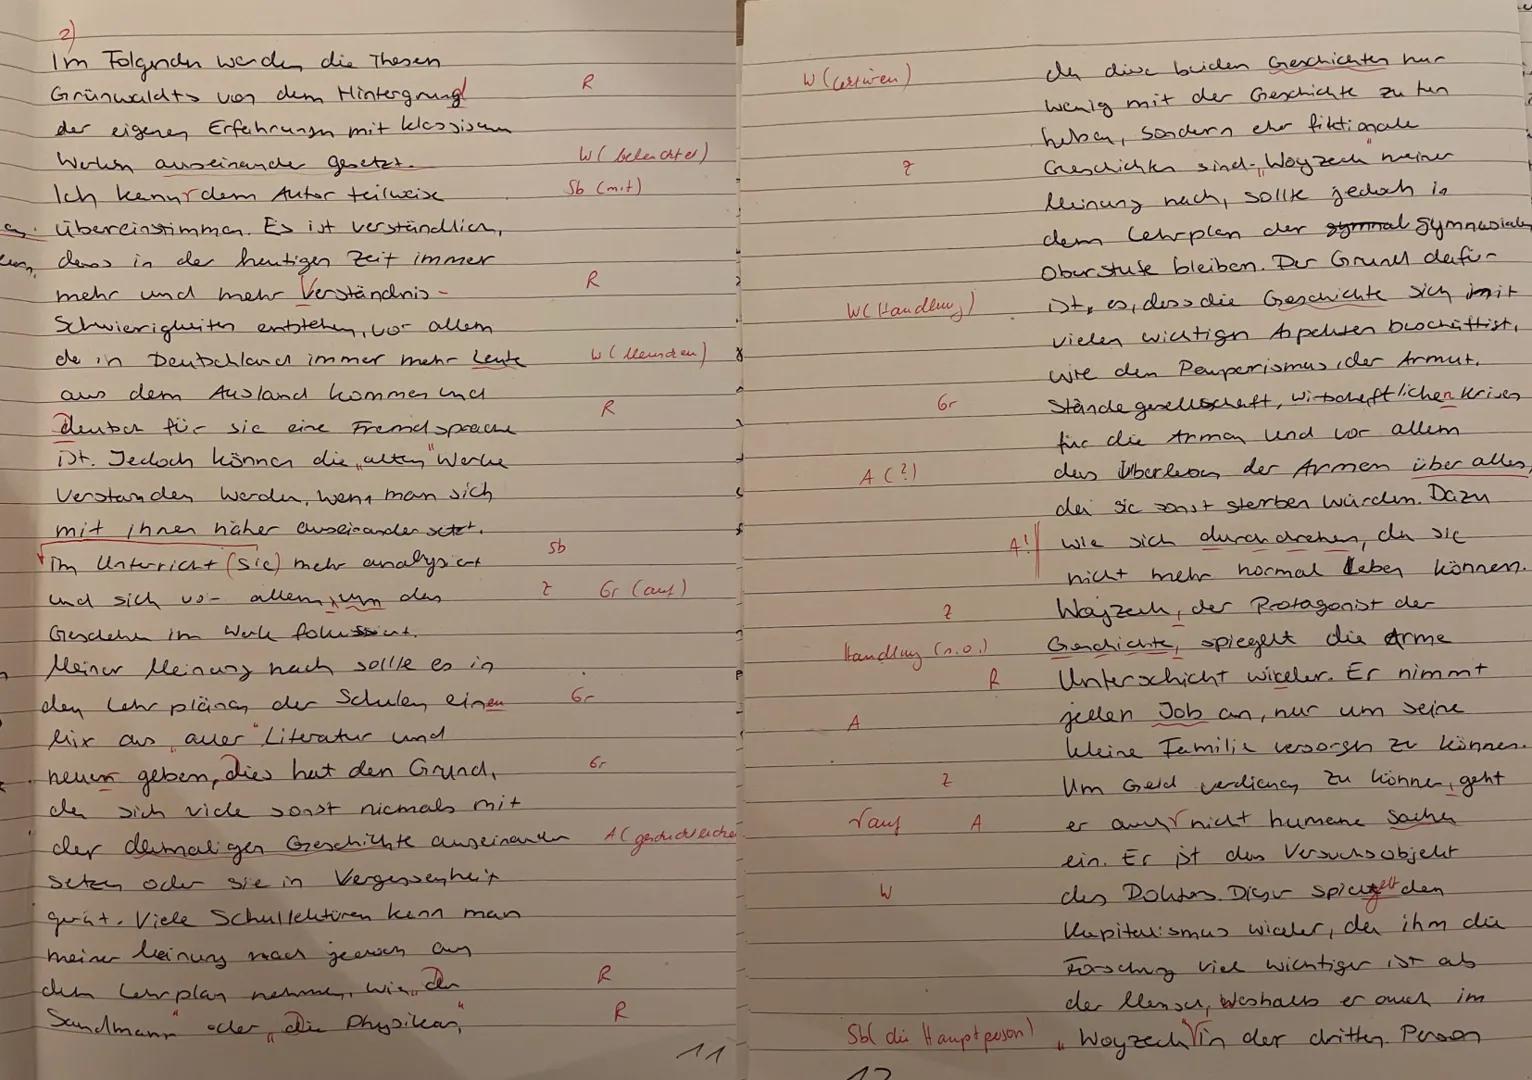 2)
Im Folgenden werden die Thesen
Grünwaldts von dem Hintergrund R
der eigenen Erfahrungen mit klassischen
Werken auseinander gesetzt. W (beleuchtet)
Ich kann dem Autor teilweise Sb (mit)
übereinstimmen. Es ist verständlich,
dass in der heutigen Zeit immer
mehr und mehr Verständnis- R
Schwierigkeiten entstehen, vor allem
da in Deutschland immer mehr Leute W (Menschen)
aus dem Ausland kommen und
deutsch für sie eine Fremdsprache R
ist. Jedoch können die „alten" Werke
verstanden werden, wenn man sich
mit ihnen näher auseinander setzt.
im Unterricht (sie) mehr analysiert Sb
und sich vor allem um das Z Gr (auf)
Geschehen im Werk fokussiert.
Meiner Meinung nach sollte es in
den Lehrplänen der Schulen einen Gr
Mix aus „alter" Literatur und
neuen geben, dies hat den Grund, Gr
da sich viele sonst niemals mit
der damaligen Geschichte auseinander A
setzen oder sie in Vergessenheit
gerät. Viele Schullektüren kann man
meiner Meinung nach jedoch aus
dem Lehrplan nehmen, wie „Der R
Sandmann" oder „Die Physiker", R
11
W
da diese beiden Geschichten nur
wenig mit der Geschichte zu tun
haben, sondern eher fiktionale
Geschichten sind. „Woyzeck" meiner Z
Meinung nach, sollte jedoch in
dem Lehrplan der gymnasialen
Oberstufe bleiben. Der Grund dafür
ist, es, dass die Geschichte sich mit W (Handlung)
vielen wichtigen Aspekten beschäftigt,
wie den Pauperismus, der Armut,
Ständegesellschaft, wirtschaftlichen Krisen Gr
für die Armen und vor allem
das Überleben der Armen über alles, A (?)
da sie sonst sterben würden. Dazu
wie sich durchdrehen, da sie A!
nicht mehr normal leben können.
Woyzeck, der Protagonist der Z
Geschichte, spiegelt die Arme Handlung (s.o.)
Unterschicht wieder. Er nimmt R
jeden Job an, nur um seine A
kleine Familie versorgen zu können.
Um Geld verdienen zu können, geht Z
er auch nicht humane Sachen auf A
ein. Er ist das Versuchsobjekt
des Doktors. Dieser spiegelt den W
Kapitalismus wieder, da ihm die
Forschung viel wichtiger ist als
der Mensch, Weshalb er auch im
„Woyzeck" in der dritten Person Sb (die Hauptperson)
12